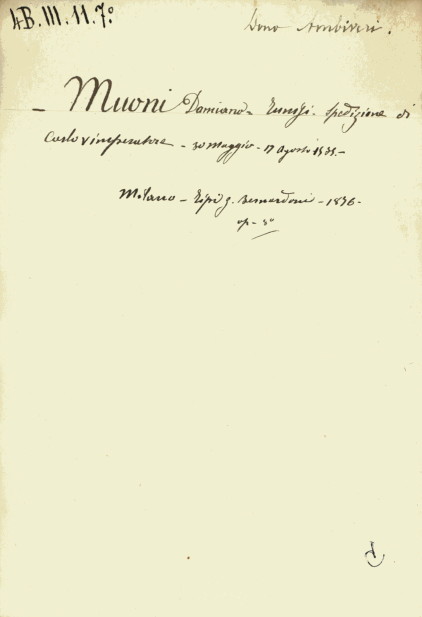 4B.III.11.7º
Dono Ambiveri.
– Muoni Damiano – Tunisi. Spedizione di
Carlo V imperatore – 30 Maggio – 17 Agosto 1535 –
Milano – Tipi G. Bernardoni – 1876 –
op – 8º